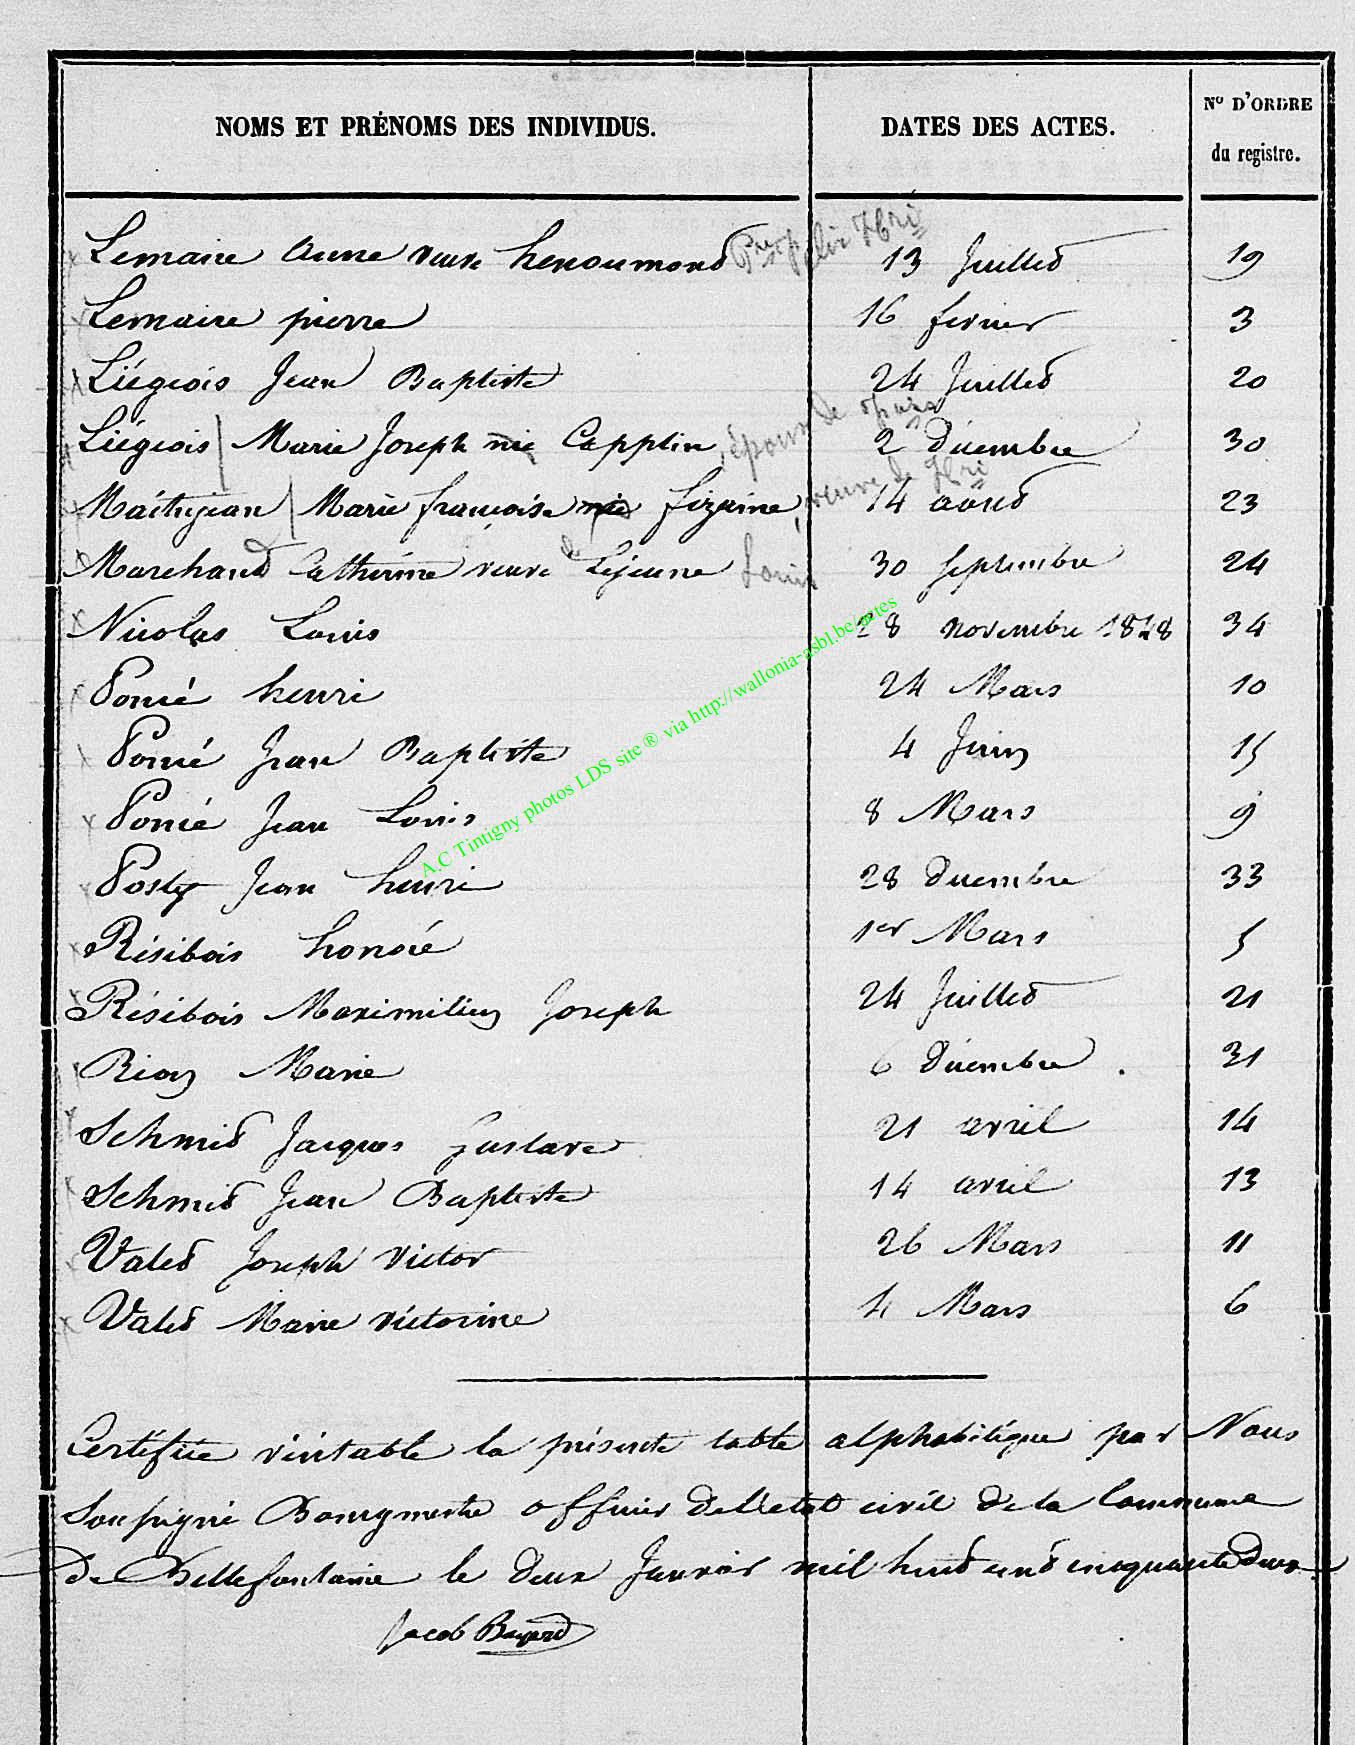 NOMS ET PRÉNOMS DES INDIVIDUS. DATES DES ACTES. N° D'ORDRE du registre.
Lemaire Anne veuve henoumond 13 Juillet 19
Lemaire pierre 16 fevrier 3
Liégeois Jean Baptiste 24 Juillet 20
Liégeois Marie Joseph née Capplin, épouse de 2 Décembre 30
Maitrejean Marie françoise née fizaine, veuve de Hri 14 aout 23
Marchand Catherine veuve de Lejeune Louis 30 septembre 24
Nicolas Louis 28 novembre 1848 34
Poncé henri 24 Mars 10
Poncé Jean Baptiste 4 Juin 15
Poncé Jean Louis 8 Mars 9
Posty Jean henri 28 Decembre 33
Résibois honoré 1er Mars 5
Résibois Maximilien Joseph 24 Juillet 21
Rion Marie 6 Décembre 31
Schmid Jacques Gustave 21 avril 14
Schmid Jean Baptiste 14 avril 13
Valet Joseph Victor 26 Mars 11
Valet Marie victorine 4 Mars 6
Certifiée véritable la présente table alphabétique par Nous
Soussigné Bourgmestre officier De l'etat civil de la Commune
De Bellefontaine le deux Janvier mil huit cent cinquante Deux
Jacob Bayard
A.C Tintigny photos LDS site ® via http://wallonia-asbl.be/actes